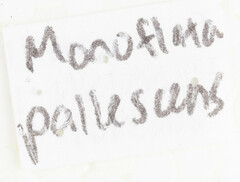 Monoflora
pallescens